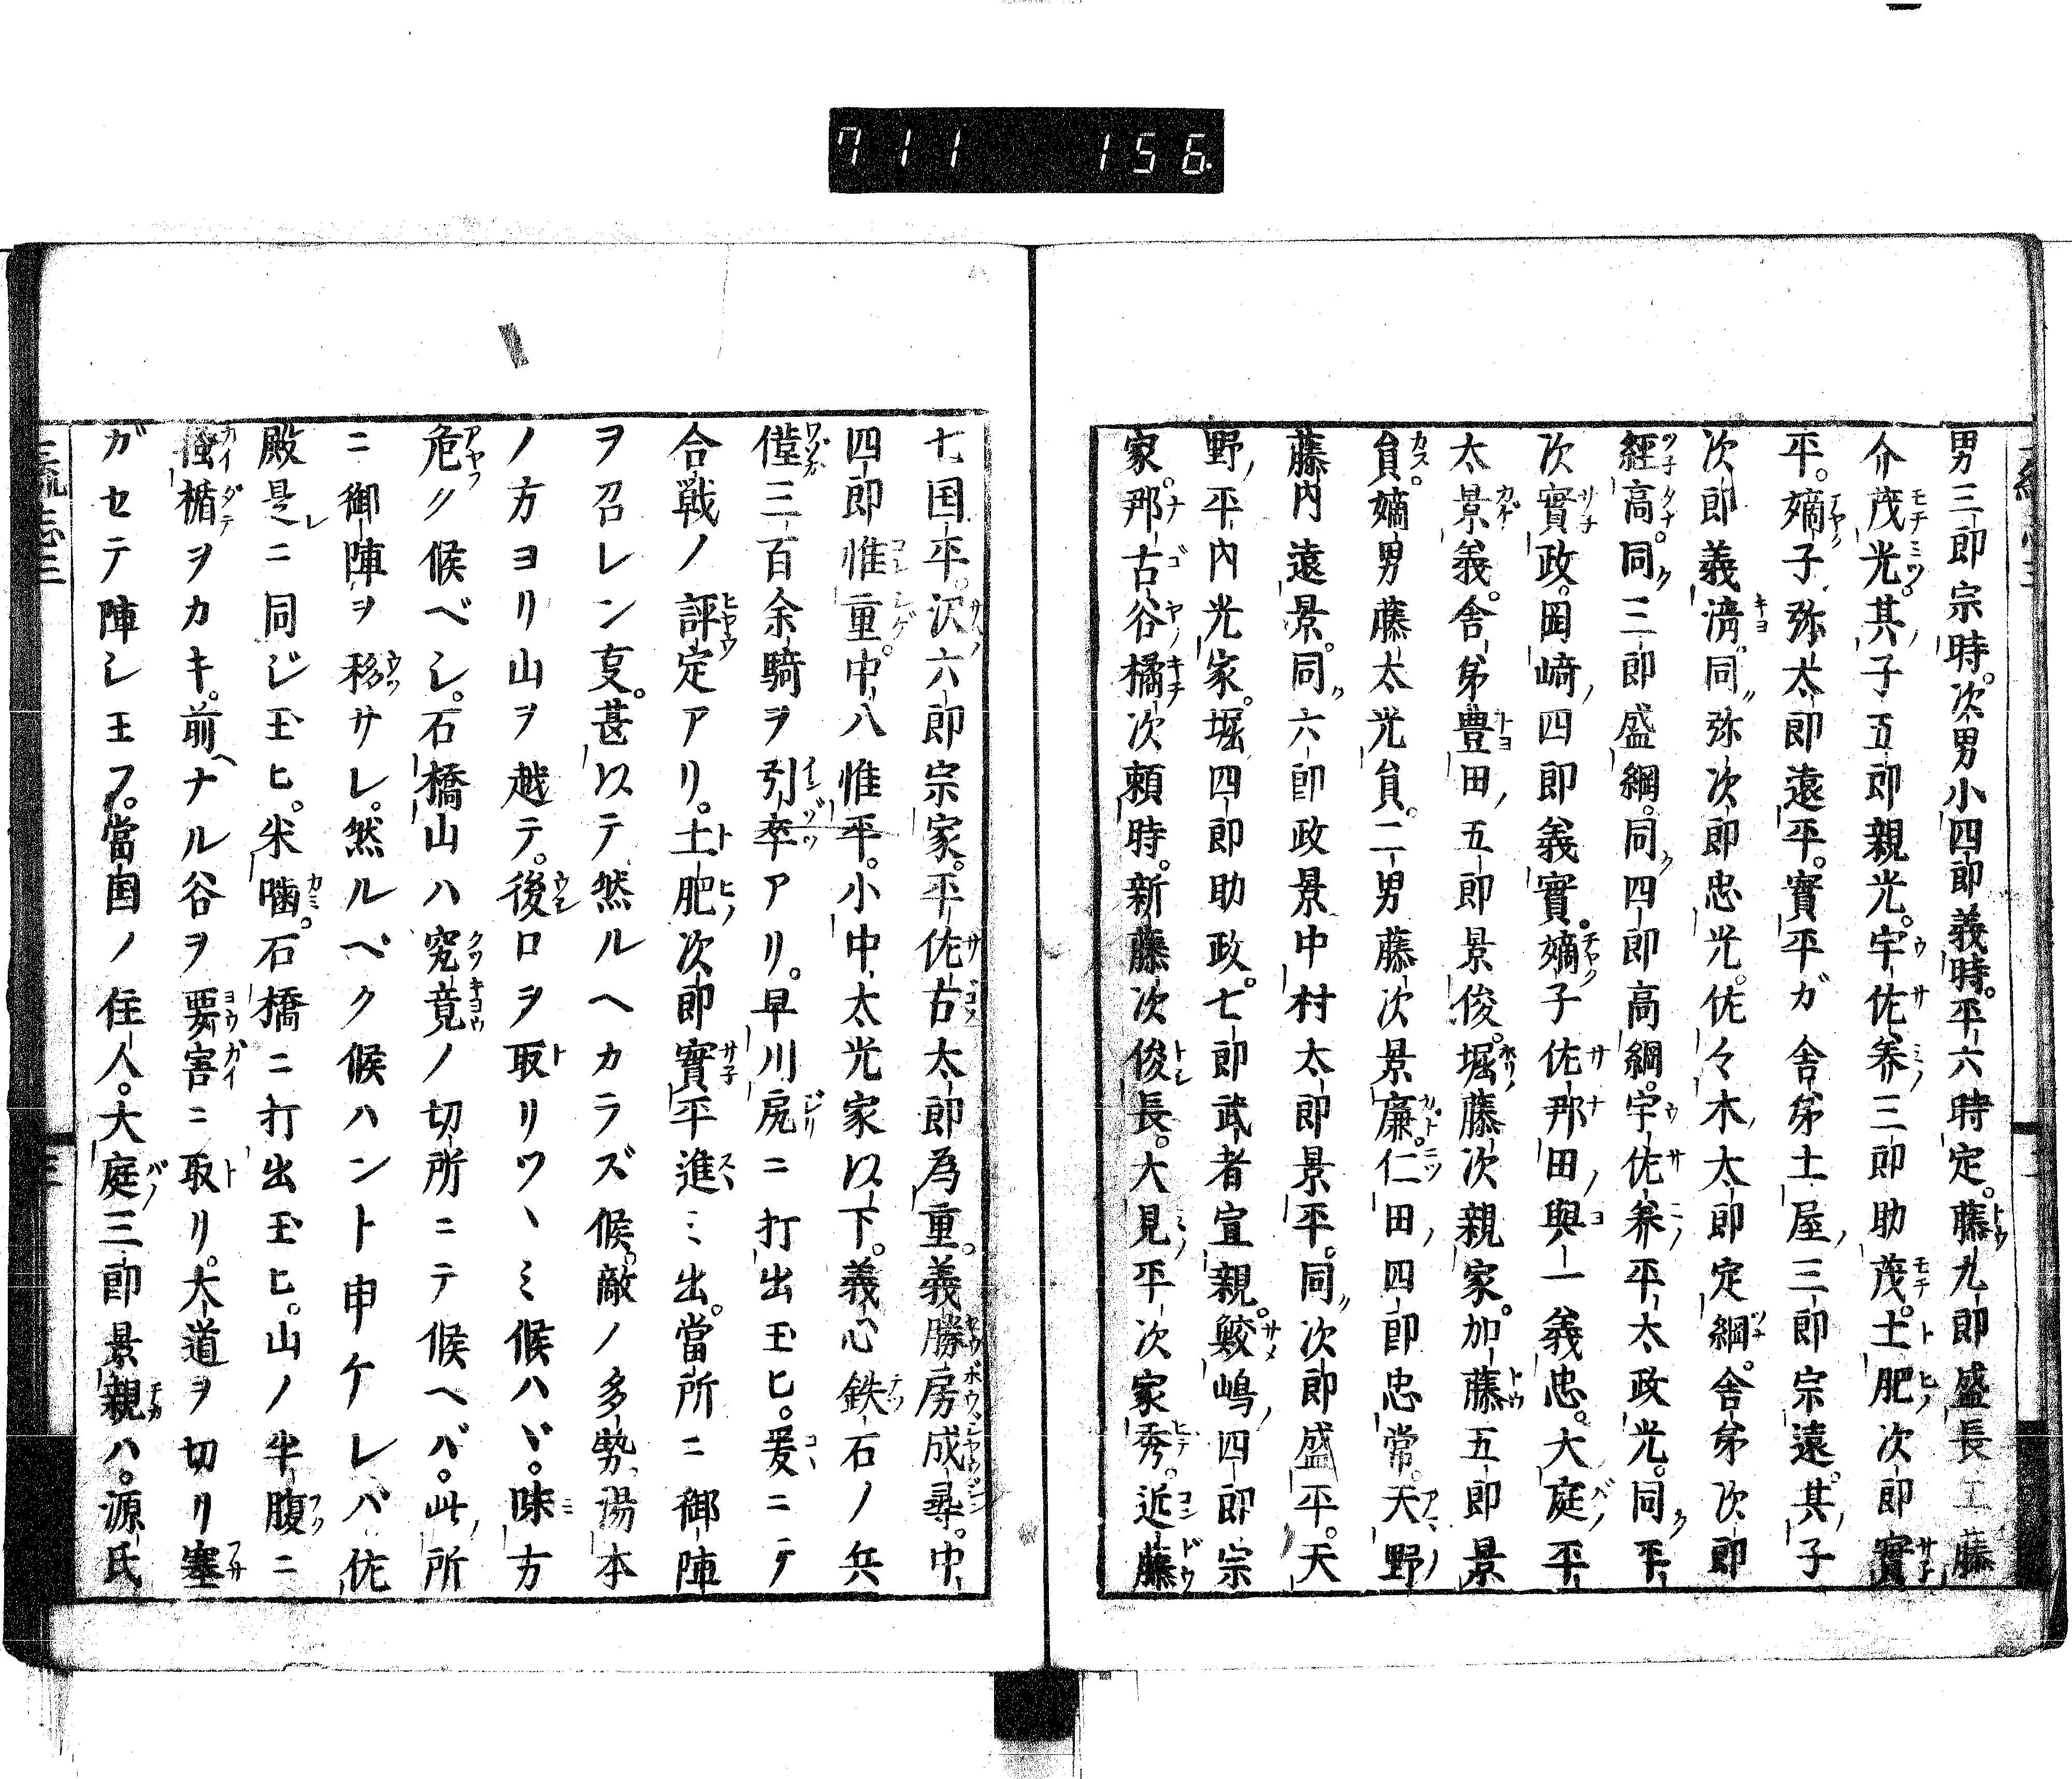 711 156.
男三郎宗時。次男小四郎義時。平六時定。藤九郎盛長工藤
介茂光。其ノ子五郎親光。宇佐美三郎助茂。土肥次郎實
平。嫡子弥太郎遠平。實平ガ舎弟土屋ノ三郎宗遠。其ノ子
次郎義清。同ク弥次郎忠光。佐々木ノ太郎定綱。舎弟次郎
經高。同ク三郎盛綱。同ク四郎高綱。宇佐美ノ平太政光。同ク平
次實政。岡崎ノ四郎義實。嫡子佐那田ノ與一義忠。大庭ノ平
太景義。舎弟豊田ノ五郎景俊。堀ノ藤次親家。加藤五郎景
員。嫡男藤太光員。二男藤次景廉。仁田ノ四郎忠常。天野ノ
藤内遠景。同ク六郎政景中村太郎景平。同ク次郎盛平。天
野ノ平内光家。堀四郎助政。七郎武者宣親。鮫嶋ノ四郎宗
家。那古谷橘次頼時。新藤次俊長。大見ノ平次家秀。近藤
七国平。沢六郎宗家。平佐古太郎為重。義勝房成尋。中
四郎惟重。中八惟平。小中太光家以下。義心鉄石ノ兵
僅三百余騎ヲ引卒アリ。早川尻ニ打出玉ヒ。爰ニテ
合戦ノ評定アリ。土肥ノ次郎實平進ミ出。當所ニ御陣
ヲ召レン叓。甚以テ然ルヘカラズ候。敵ノ多勢、湯本
ノ方ヨリ山ヲ越テ。後ロヲ取リツヽミ候ハヾ。味方
危ク候ベシ。石橋山ハ究竟ノ切所ニテ候ヘバ。此ノ所
ニ御陣ヲ移サレ。然ルベク候ハント申ケレバ佐
殿是レニ同ジ玉ヒ。米噛。石橋ニ打出玉ヒ。山ノ半腹ニ
掻楯ヲカキ。前ヘナル谷ヲ要害ニ取リ。大道ヲ切リ塞
ガセテ陣シ玉フ。當国ノ住人。大庭ノ三郎景親ハ。源氏